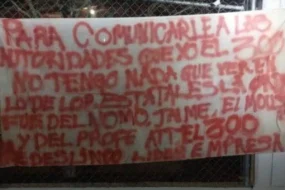 PARA COMUNICARLE A LAS
AUTORIDADES QUE YO EL 300
NO TENGO NADA QUE VER EN
LO DE LOS ESTATALES LA
FUE DEL NOMO, JAIME, EL MOUS
Y DEL PROFE ATT EL 300
ME DESLINDO EMPRESA